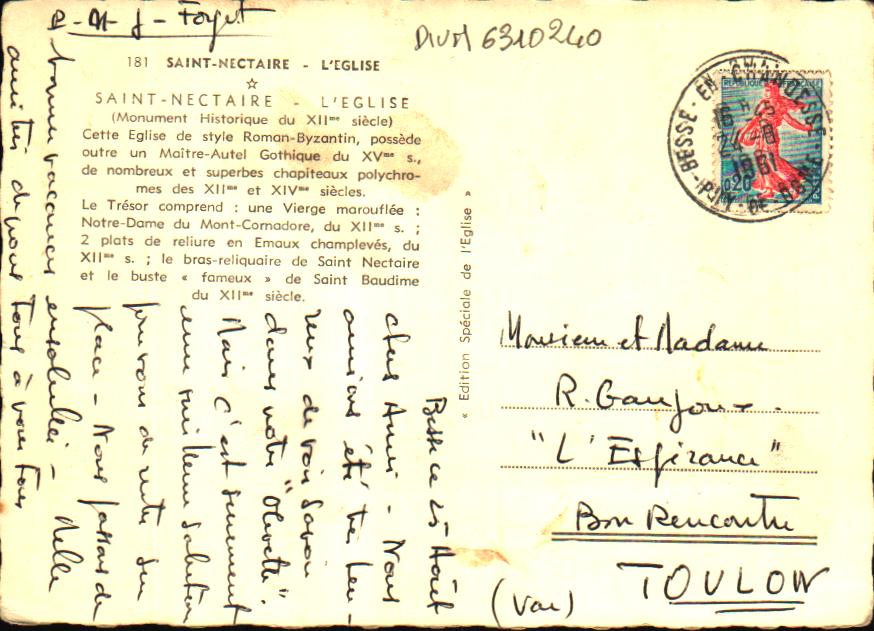 DIVM 6310240
181 SAINT-NECTAIRE - L'EGLISE
SAINT-NECTAIRE - L'EGLISE
(Monument Historique du XIIme siècle)
Cette Eglise de style Roman-Byzantin, possède
outre un Maître-Autel Gothique du XVme s.,
de nombreux et superbes chapiteaux polychro-
mes des XIIme et XIVme siècles.
Le Trésor comprend : une Vierge marouflée :
Notre-Dame du Mont-Cornadore, du XIIme s. ;
2 plats de reliure en Emaux champlevés, du
XIIme s. ; le bras-reliquaire de Saint Nectaire
et le buste « fameux » de Saint Baudime
du XIIme siècle.
« Edition Spéciale de l'Eglise »
REPUBLIQUE FRANÇAISE
0,20
POSTES
BESSE-EN-CHANDESSE
16 H 15
24-8
1961
PUY-DE-DOME
Besse ce 25 Août
chers Amis - Nous
aurions été très heu-
reux de vous savoir
dans votre "Olivette".
Mais c'est sûrement
une meilleure solution
pour vous de rester sur
place - Nous faisons de
bonnes vacances ensoleillées - Mille
amitiés de nous tous à vous tous
P-M-J-Forget
Monsieur et Madame
R. Gaujoux.
"L'Espérance"
Bon Rencontre
TOULON
(Var)